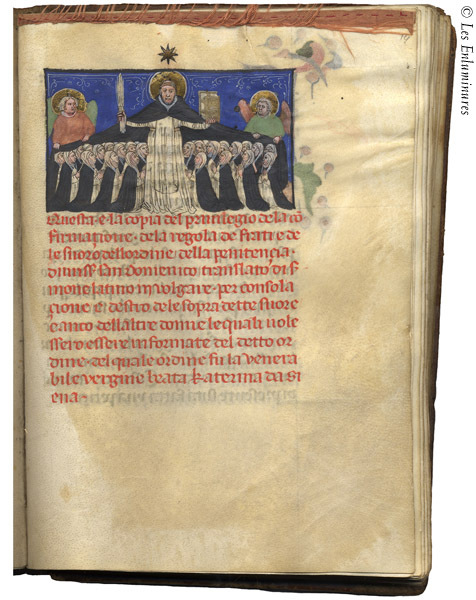 Questa e la copia del privilegio de la cō
firmaçione · de la regola de frati e de
le suoro dell ordine della penitençia ·
di miss̄ san Domenico translato di s̄
mone latino in vulgare · per consola
çione e destro dele sopra dette suore
e anco dell altre donne le quali voles
sero essere informate del detto or
dine · del quale ordine fu la venera
bile vergine beata Katerina da Si
ena ·
© Les Enluminures